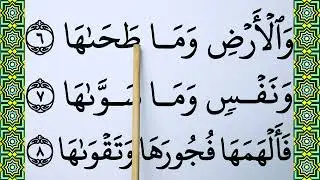 وَٱلْأَرْضِ وَمَا طَحَىٰهَا ٦
وَنَفْسٍ وَمَا سَوَّىٰهَا ٧
فَأَلْهَمَهَا فُجُورَهَا وَتَقْوَىٰهَا ٨